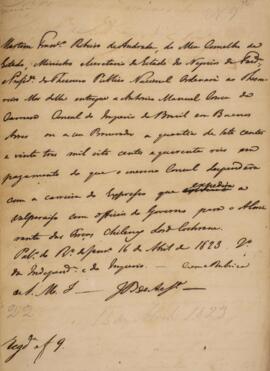 Martim Franco Ribeiro de Andrada, do Meu Conselho de
Estado, Ministro Secretario de Estado do Negocios da Fazda
do Thesouro Publico Nacional Ordenará ao Thesou
reiro Mor delle entregue a Antonio Manuel Correa da
Camara Consul do Imperio do Brasil em Buenos
Ayres ou a seu Procurador a quantia de sete centos
e vinte tres mil oito centos e quarenta reis em
pagamento do que o mesmo Consul despendeu
com a carreira do Expresso que expedio a
Valparaiso com officios do Governo para o Almi
rante das Forças Chilenas Lord Cochrane.
Palo do Ro de Janro 16 de Abril de 1823. 2o
da Independa e do Imperio. — Com a Rubrica
de S. M. I. —
202
16 de Abril 1823
Regda f 9.